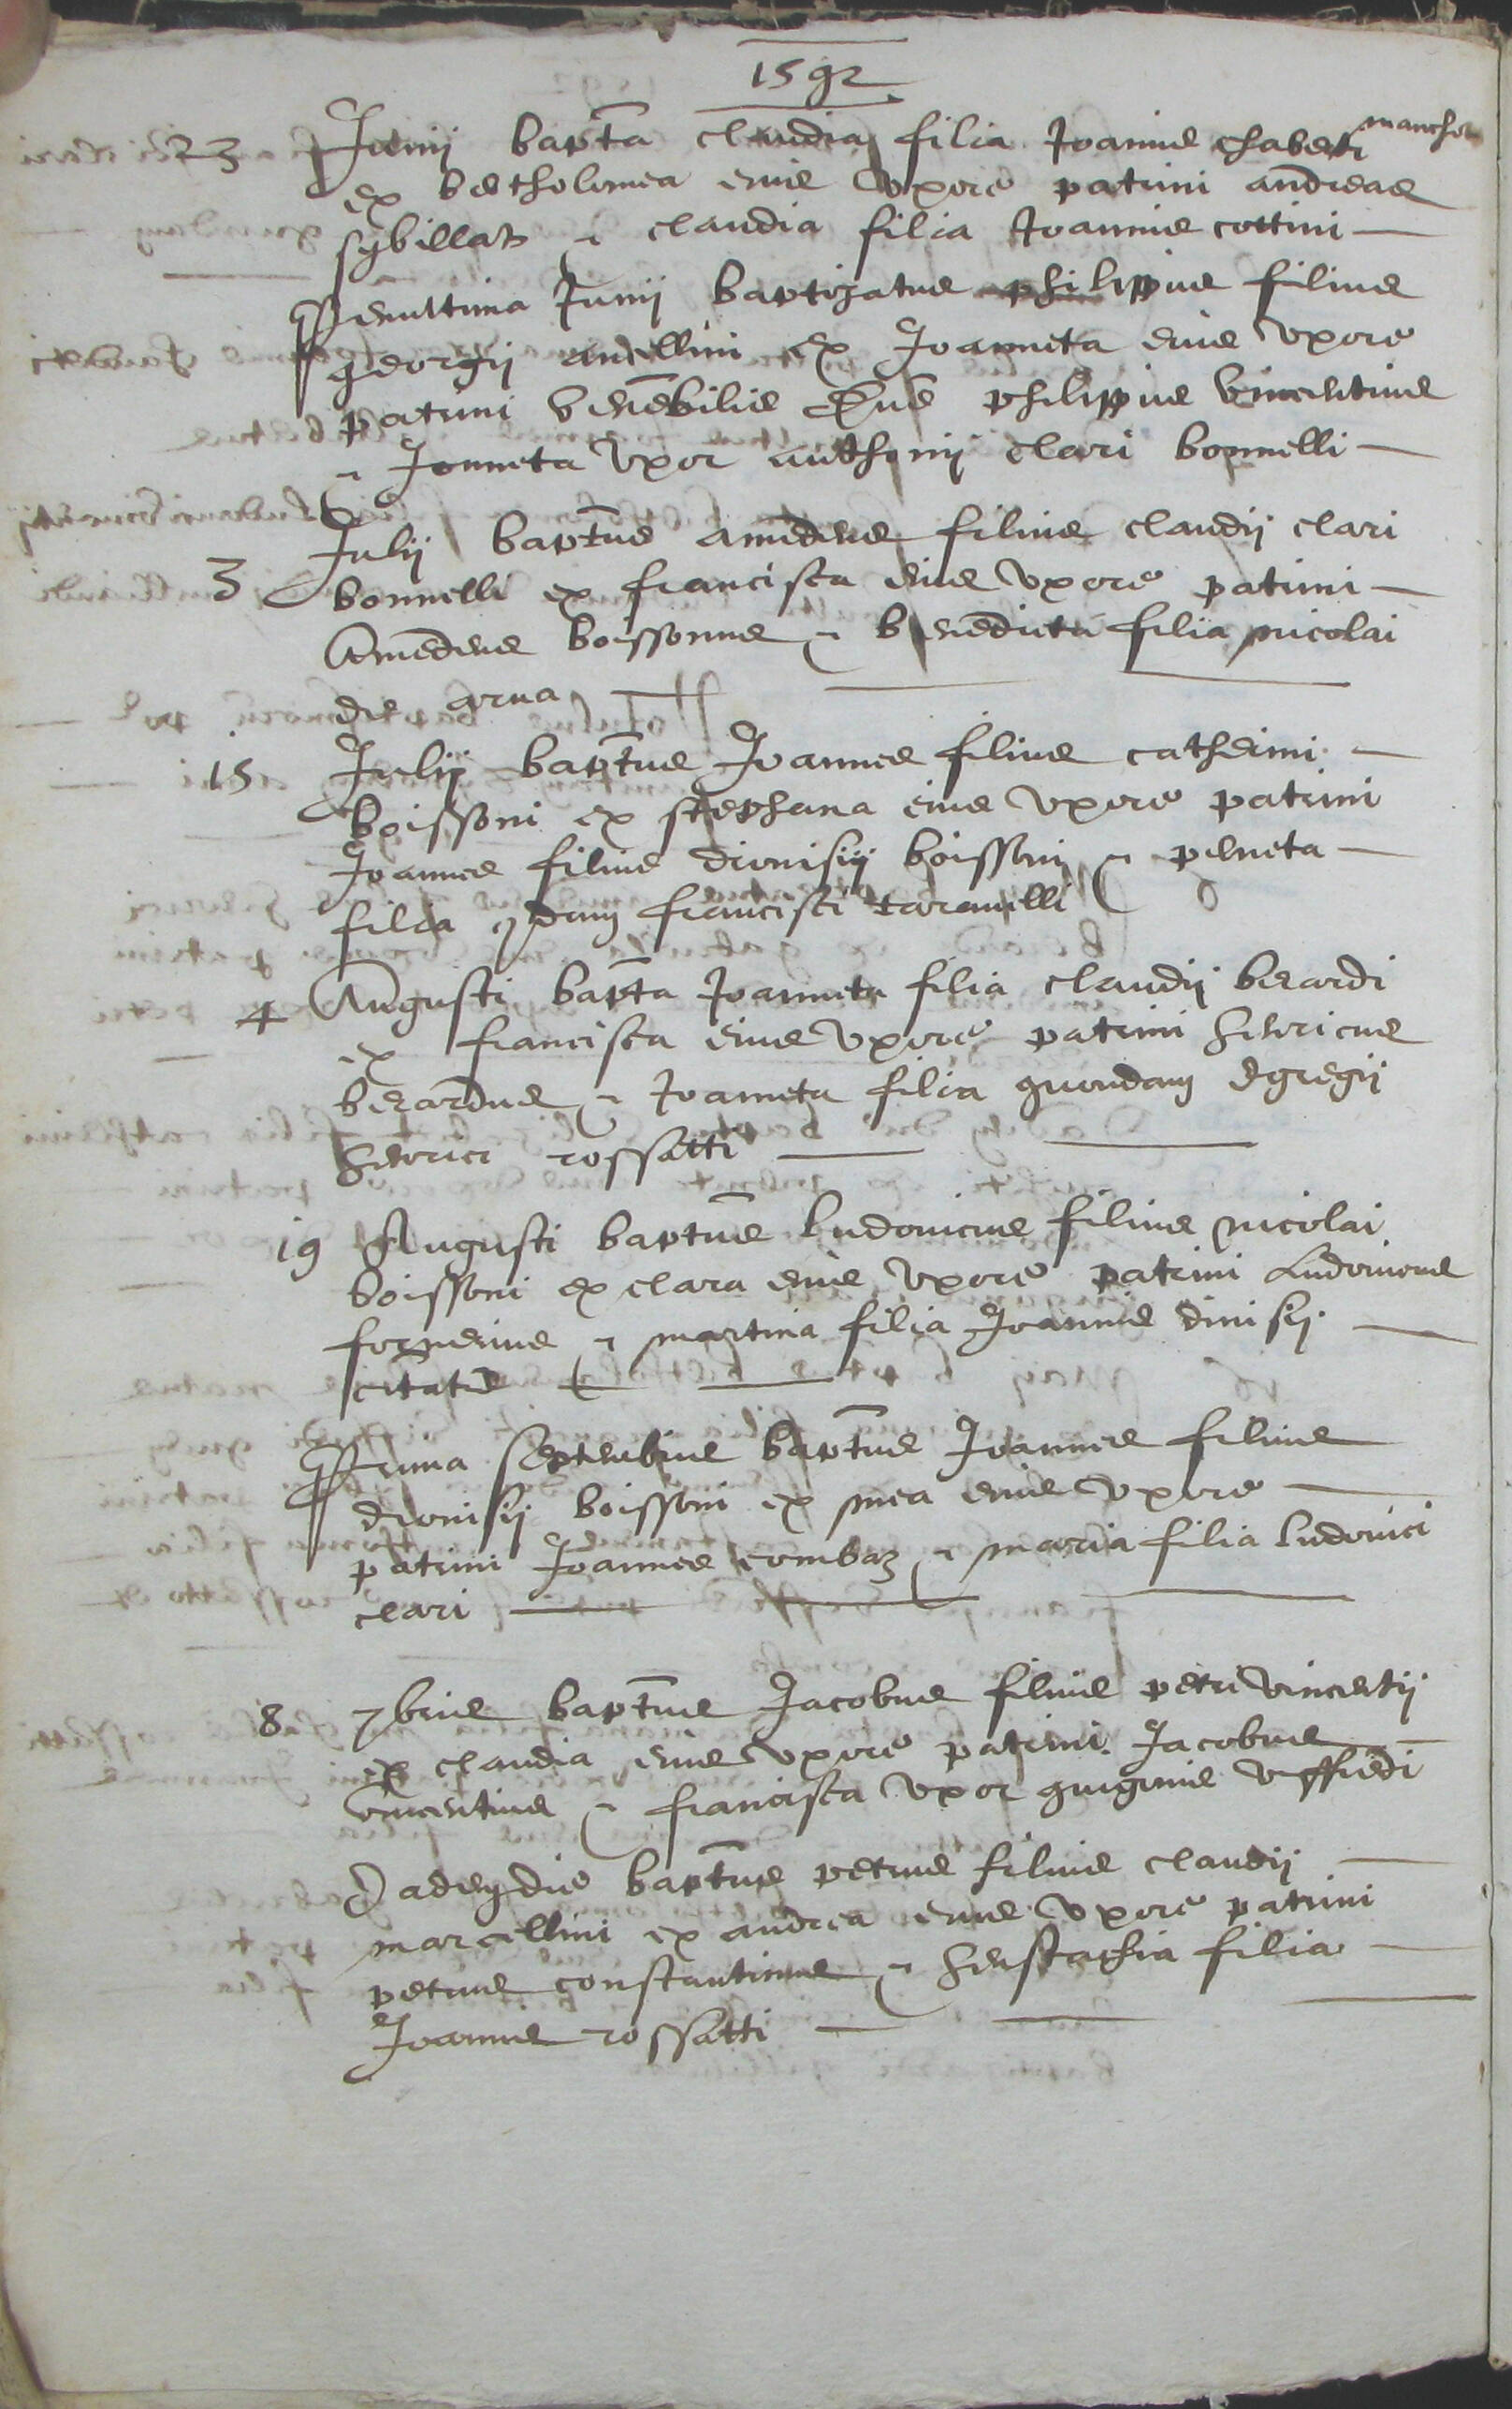 1592
23 Junii bapta claudia filia Joannis chaberti manchot
ex bertholomea eius uxore patrini andreas
sybillat & claudia filia Joannis cottini
Penultima Junii baptizatus philippus filius
georgii ancellini ex Joanneta eius uxore
patrini venebilis dnus philippus vincentius
& Jonneta uxor anthonii clari bonnelli
3 Julii baptus amedeus filius claudii clari
bonnelli ex francisca eius uxore patrini
Amedeus boissonus & benedicta filia nicolai
de arua
15 Julii baptus Joannes filius catherini
boissoni ex stephana eius uxore patrini
Joannes filius dionisii boissoni & perneta
filia qdam francisci taramelli
4 Augusti bapta Joanneta filia claudii berardi
ex francisca eius uxore patrini henricus
berardus & Joanneta filia quondam egregii
henrici rossatti
19 Augusti baptus ludovicus filius nicolai
boissoni ex clara eius uxore patrini Ludovicus
fornerius & martina filia Joannis dinisii
citatus
Prima septembris baptus Joannes filius
dionisii boissoni ex mea eius uxore
patrini Joannes combaz & maria filia ludovici
clari
8 7bris baptus Jacobus filius petri vincentii
ex claudia eius uxore patrini Jacobus
vincentius & francisca uxor guigonis uffredi
Eadem die baptus petrus filius claudii
marcellini ex andrea eius uxore patrini
petrus constantinus & heustachia filia
Joannis rossatti